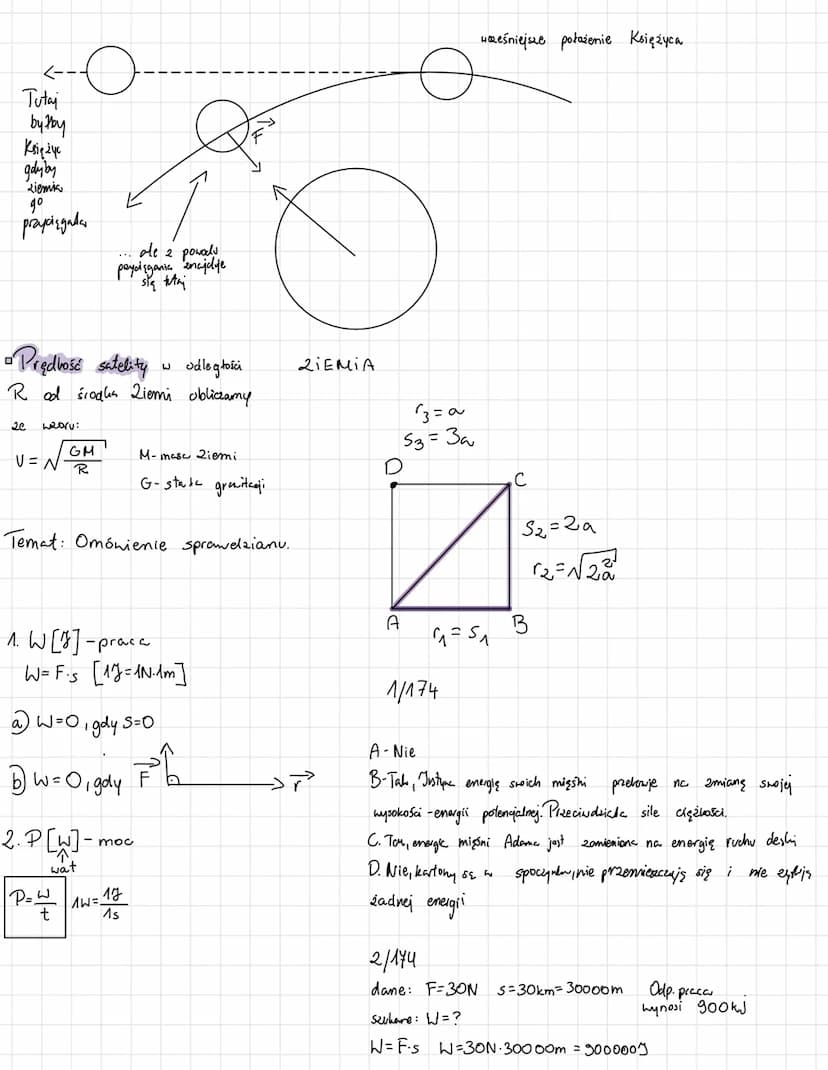 wcześniejsze położenie Księżyca
Tutaj
byłby
Księżyc
gdyby
ziemia
go
przyciągała
F
... ale z powodu
przyciągania znajduje
się tutaj
ZIEMIA
Prędkość satelity w odległości
R od środka Ziemi obliczamy
ze wzoru:
V = √GM/R
M-masa Ziemi
G-stała grawitacji
r₃ = a
s₃ = 3a
D
C
s₂ = 2a
r₂ = √2a²
A
B
r₁ = s₁
Temat: Omówienie sprawdzianu.
1. W [J] - praca
W = F·s [1J = 1N·1m]
a) W=0, gdy s=0
b) W=0, gdy F r
2. P [W] - moc
wat
P = W/t 1W = 1J/1s
1/174
A - Nie
B-Tak, Justyna energię swoich mięśni na zmianę swojej
wysokości -energii potencjalnej. sile ciężkości.
C. Tak, energia mięśni Adama jest zamieniona na energię ruchu deski
D. Nie, kartony są w spoczynku, nie przemieszczają się i nie
żadnej energii
2/174
dane: F=30N s=30km= 30000m
szukane: W=?
W=F·s W=30N·30000m = 900000J
Odp. praca
wynosi 900kJ